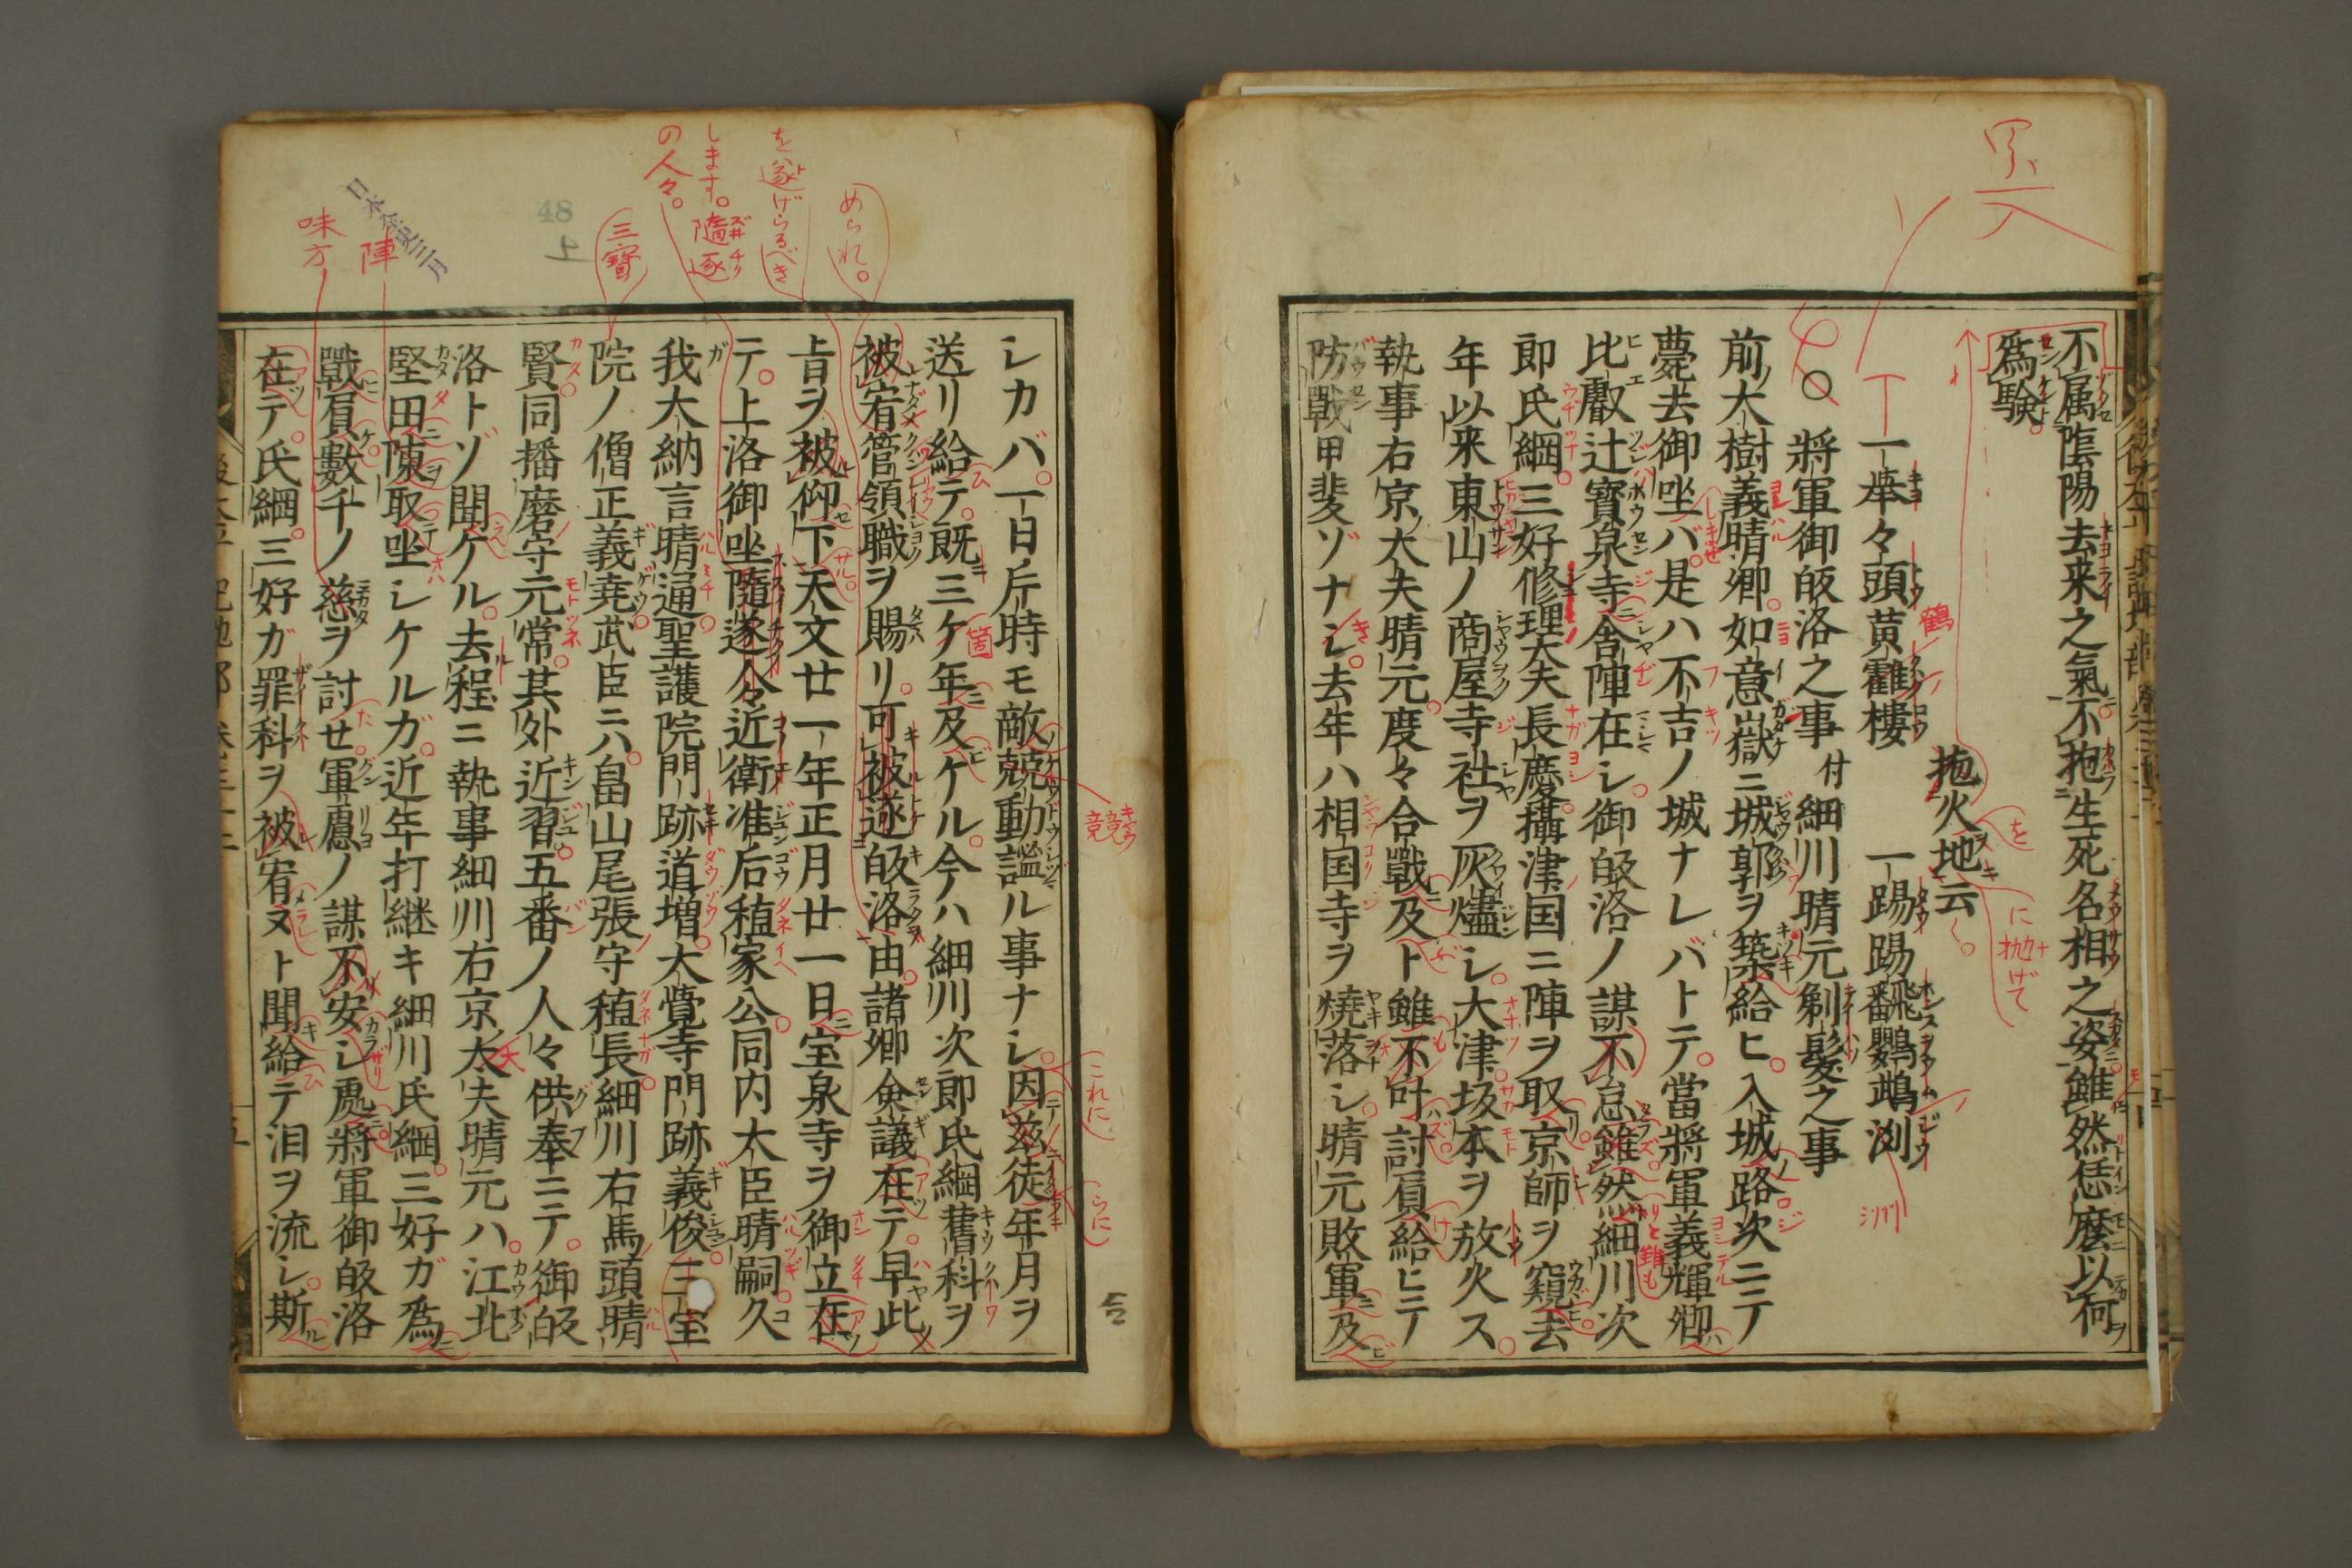 不属陰陽去来之氣不抱生死名相之姿雖然恁麼以何
爲驗
抛火地云
一挙々頭黄鶴樓 一踢踢飜鸚鵡洲
○將軍御皈洛之事 付 細川晴元剃髮之事
前大樹義晴卿如意嶽ニ城郭ヲ築給ヒ入城路次ニテ
薨去御坐バ是ハ不吉ノ城ナレバトテ當將軍義輝卿
比叡辻寳泉寺ニ舎陣在シ御皈洛ノ謀不怠雖然細川次
郎氏綱三好修理大夫長慶攝津国ニ陣ヲ取京師ヲ窺去
年以来東山ノ商屋寺社ヲ灰燼シ大津坂本ヲ放火ス
執事右京大夫晴元度々合戰及ト雖不叶討負給ヒニテ
防戰甲斐ゾナシ去年ハ相国寺ヲ燒落シ晴元敗軍及
レカバ一日片時モ敵兢動謐ル事ナシ因茲徒年月ヲ
送リ給テ既三ケ年及ケル今ハ細川次郎氏綱舊科ヲ
被宥管領職ヲ賜リ可被遂皈洛由諸卿僉議在テ早此
旨ヲ被仰下天文廿一年正月廿一日宝泉寺ヲ御立在
テ上洛御坐隨遂人々近衛准后稙家公同内大臣晴嗣久
我大納言晴通聖護院門跡道増大覺寺門跡義俊三宝
院ノ僧正義堯武臣ニハ畠山尾張守稙長細川右馬頭晴
賢同播磨守元常其外近習五番ノ人々供奉ニテ御皈
洛トゾ聞ケル去程ニ執事細川右京太夫晴元ハ江北
堅田陳取坐シケルガ近年打継キ細川氏綱三好ガ爲
戰負數千ノ慈ヲ討せ軍慮ノ謀不安シ處將軍御皈洛
在テ氏綱三好ガ罪科ヲ被宥ヌト聞給テ泪ヲ流シ斯
められ。
を遂げらるべき
します。隨逐
の人々。
三寳
陣
味方
48